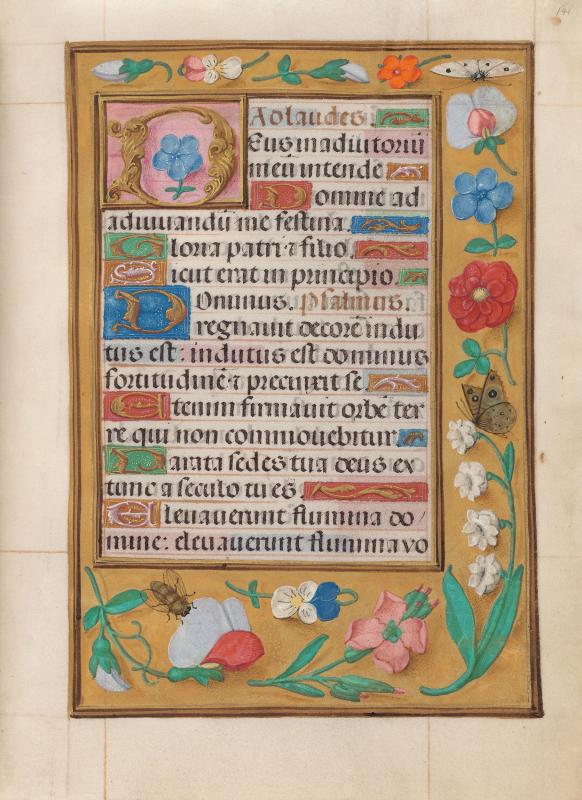 Ad laudes.
Deus in adiutoriū
meū intende
Domine ad
adiuuandū me festina.
Gloria patri ⁊ filio.
Sicut erat in principio.
Dominus. Psalmus
regnauit decorē indu
tus est: indutus est dominus
fortitudinē ⁊ precinxit se.
Etenim firmauit orbē ter
re qui non commouebitur
Parata sedes tua deus ex
tunc a seculo tu es.
Eleuauerunt flumina do
mine: eleuauerunt flumina vo